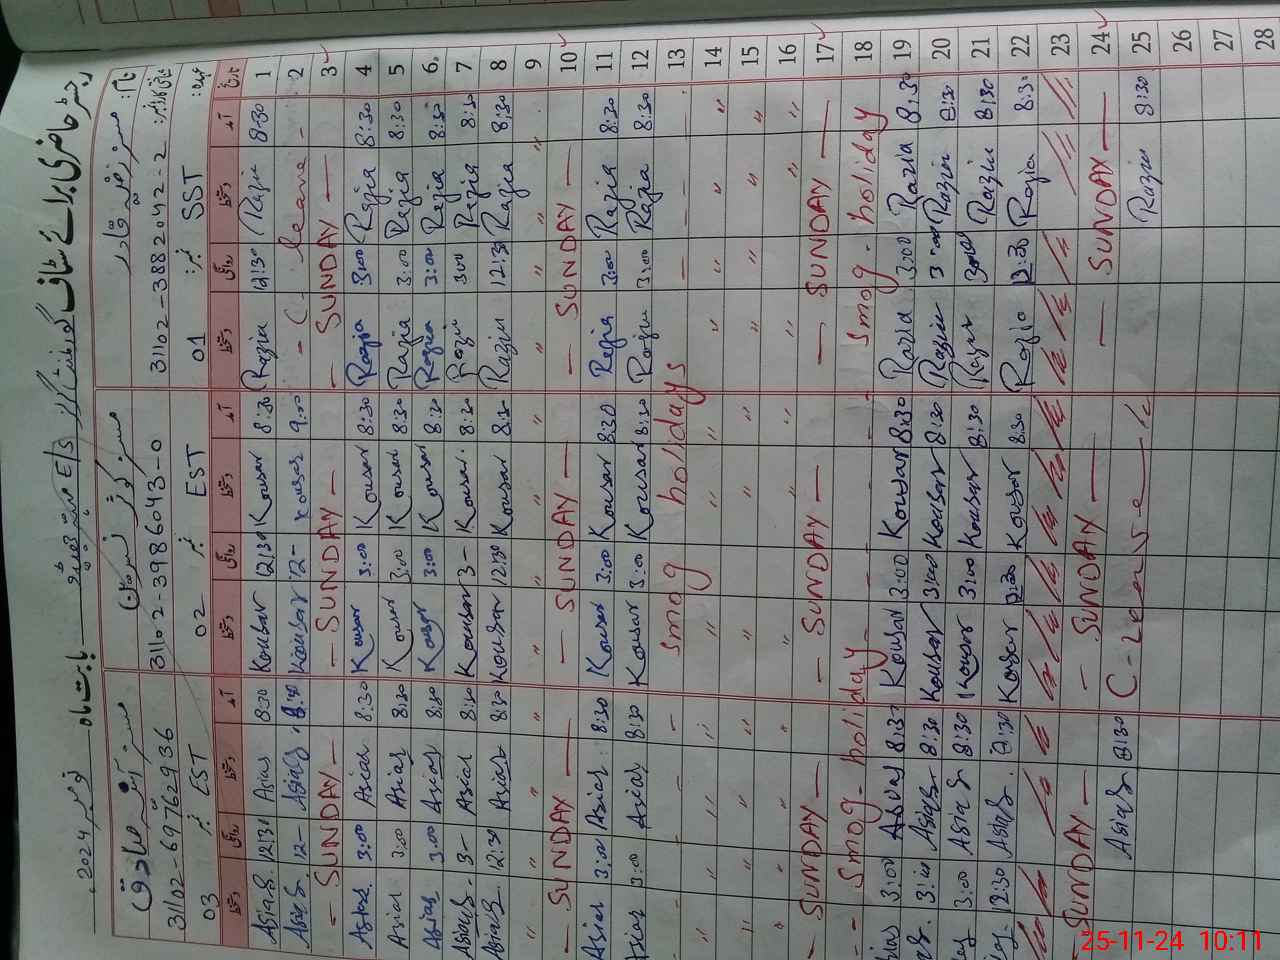 رجسٹر حاضری برائے سٹاف گورنمنٹ گرلز E/S
بابت ماہ نومبر 2024
نام: مسز رضیہ قادر
مسز کوثر نسرین
مسز آسیہ صادق
شناختی کارڈ نمبر: 31102-3882042-2
31102-3986043-0
31102-6976293 6
عہدہ: SST نمبر: 01
EST نمبر 02
EST نمبر 03
تاریخ آمد دستخط روانگی دستخط آمد دستخط روانگی دستخط آمد دستخط روانگی دستخط
1 8:30 Razia 12:30 Razia 8:30 Kousar 12:30 Kousar 8:30 Asia S. 12:30 Asia S.
2 - C. leave - 9:00 Kousar 12- Kousar 8:30 Asia S. 12- Asia S.
3 — SUNDAY — — SUNDAY — — SUNDAY —
4 8:30 Razia 3:00 Razia 8:30 Kousar 3:00 Kousar 8:30 Asia S. 3:00 Asia S.
5 8:30 Razia 3:00 Razia 8:30 Kousar 3:00 Kousar 8:30 Asia S. 3:00 Asia S.
6 8:30 Razia 3:00 Razia 8:30 Kousar 3:00 Kousar 8:30 Asia S. 3:00 Asia S.
7 8:30 Razia 3:00 Razia 8:30 Kousar 3- Kousar 8:30 Asia S. 3- Asia S.
8 8:30 Razia 12:30 Razia 8:30 Kousar 12:30 Kousar 8:30 Asia S. 12:30 Asia S.
9 " " " " " " " " " " "
10 — SUNDAY — — SUNDAY — — SUNDAY —
11 8:30 Razia 3:00 Razia 8:30 Kousar 3:00 Kousar 8:30 Asia S. 3:00 Asia S.
12 8:30 Razia 3:00 Razia 8:30 Kousar 3:00 Kousar 8:30 Asia S. 3:00 Asia S.
13 - - - Smog holidays - - - -
14 " " " " " " " " " " " "
15 " " " " " " " " " " " "
16 " " " " " " " " " " " "
17 — SUNDAY — — SUNDAY — — SUNDAY —
18 Smog. holiday - - - - Smog. holiday - -
19 8:30 Razia 3:00 Razia 8:30 Kousar 3:00 Kousar 8:30 Asia S. 3:00
20 8:30 Razia 3:00 Razia 8:30 Kousar 3:00 Kousar 8:30 Asia S. 3:00
21 8:30 Razia 3:00 Razia 8:30 Kousar 3:00 Kousar 8:30 Asia S. 3:00
22 8:30 Razia 12:30 Razia 8:30 Kousar 12:30 Kousar 8:30 Asia S. 12:30
23
24 — SUNDAY — — SUNDAY — SUNDAY —
25 8:30 Razia C-Leave 8:30 Asia S.
26
27
28
25-11-24 10:11